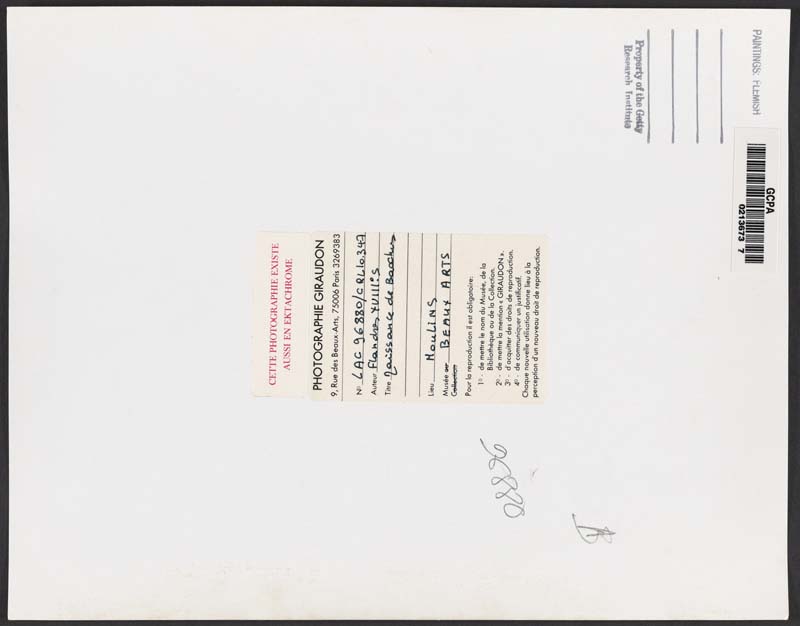 PAINTINGS: FLEMISH
Property of the Getty
Research Institute
GCPA
0213673 7
CETTE PHOTOGRAPHIE EXISTE
AUSSI EN EKTACHROME
PHOTOGRAPHIE GIRAUDON
9, Rue des Beaux-Arts, 75006 Paris 3269383
N° LAC 96880/CRL10.347
Auteur Flandres XVIIIs
Titre Naissance de Bacchus
Lieu Moulins
Musée ou BEAUX ARTS
Collection
Pour la reproduction il est obligatoire:
1° - de mettre le nom du Musée, de la
Bibliothèque ou de la Collection.
2° - de mettre la mention « GIRAUDON ».
3° - d'acquitter des droits de reproduction.
4° - de communiquer un justificatif.
Chaque nouvelle utilisation donne lieu à la
perception d'un nouveau droit de reproduction.
96880